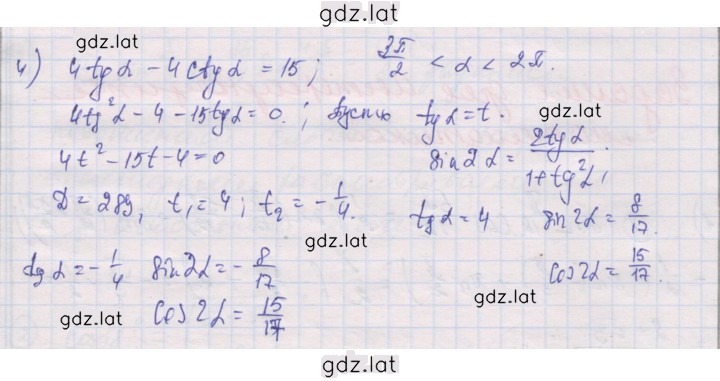 gdz.lat
gdz.lat
4) 4tgα − 4ctgα = 15; 3π/2 < α < 2π.
4tg²α − 4 − 15tgα = 0.; Пусть tgα = t.
gdz.lat
4t² − 15t − 4 = 0 sin2α = 2tgα/1+tg²α;
D = 289, t₁ = 4; t₂ = −1/4. tgα = 4 sin2α = 8/17.
gdz.lat
tgα = −1/4 sin2α = −8/17 cos2α = 15/17.
gdz.lat
cos2α = 15/17
gdz.lat
gdz.lat